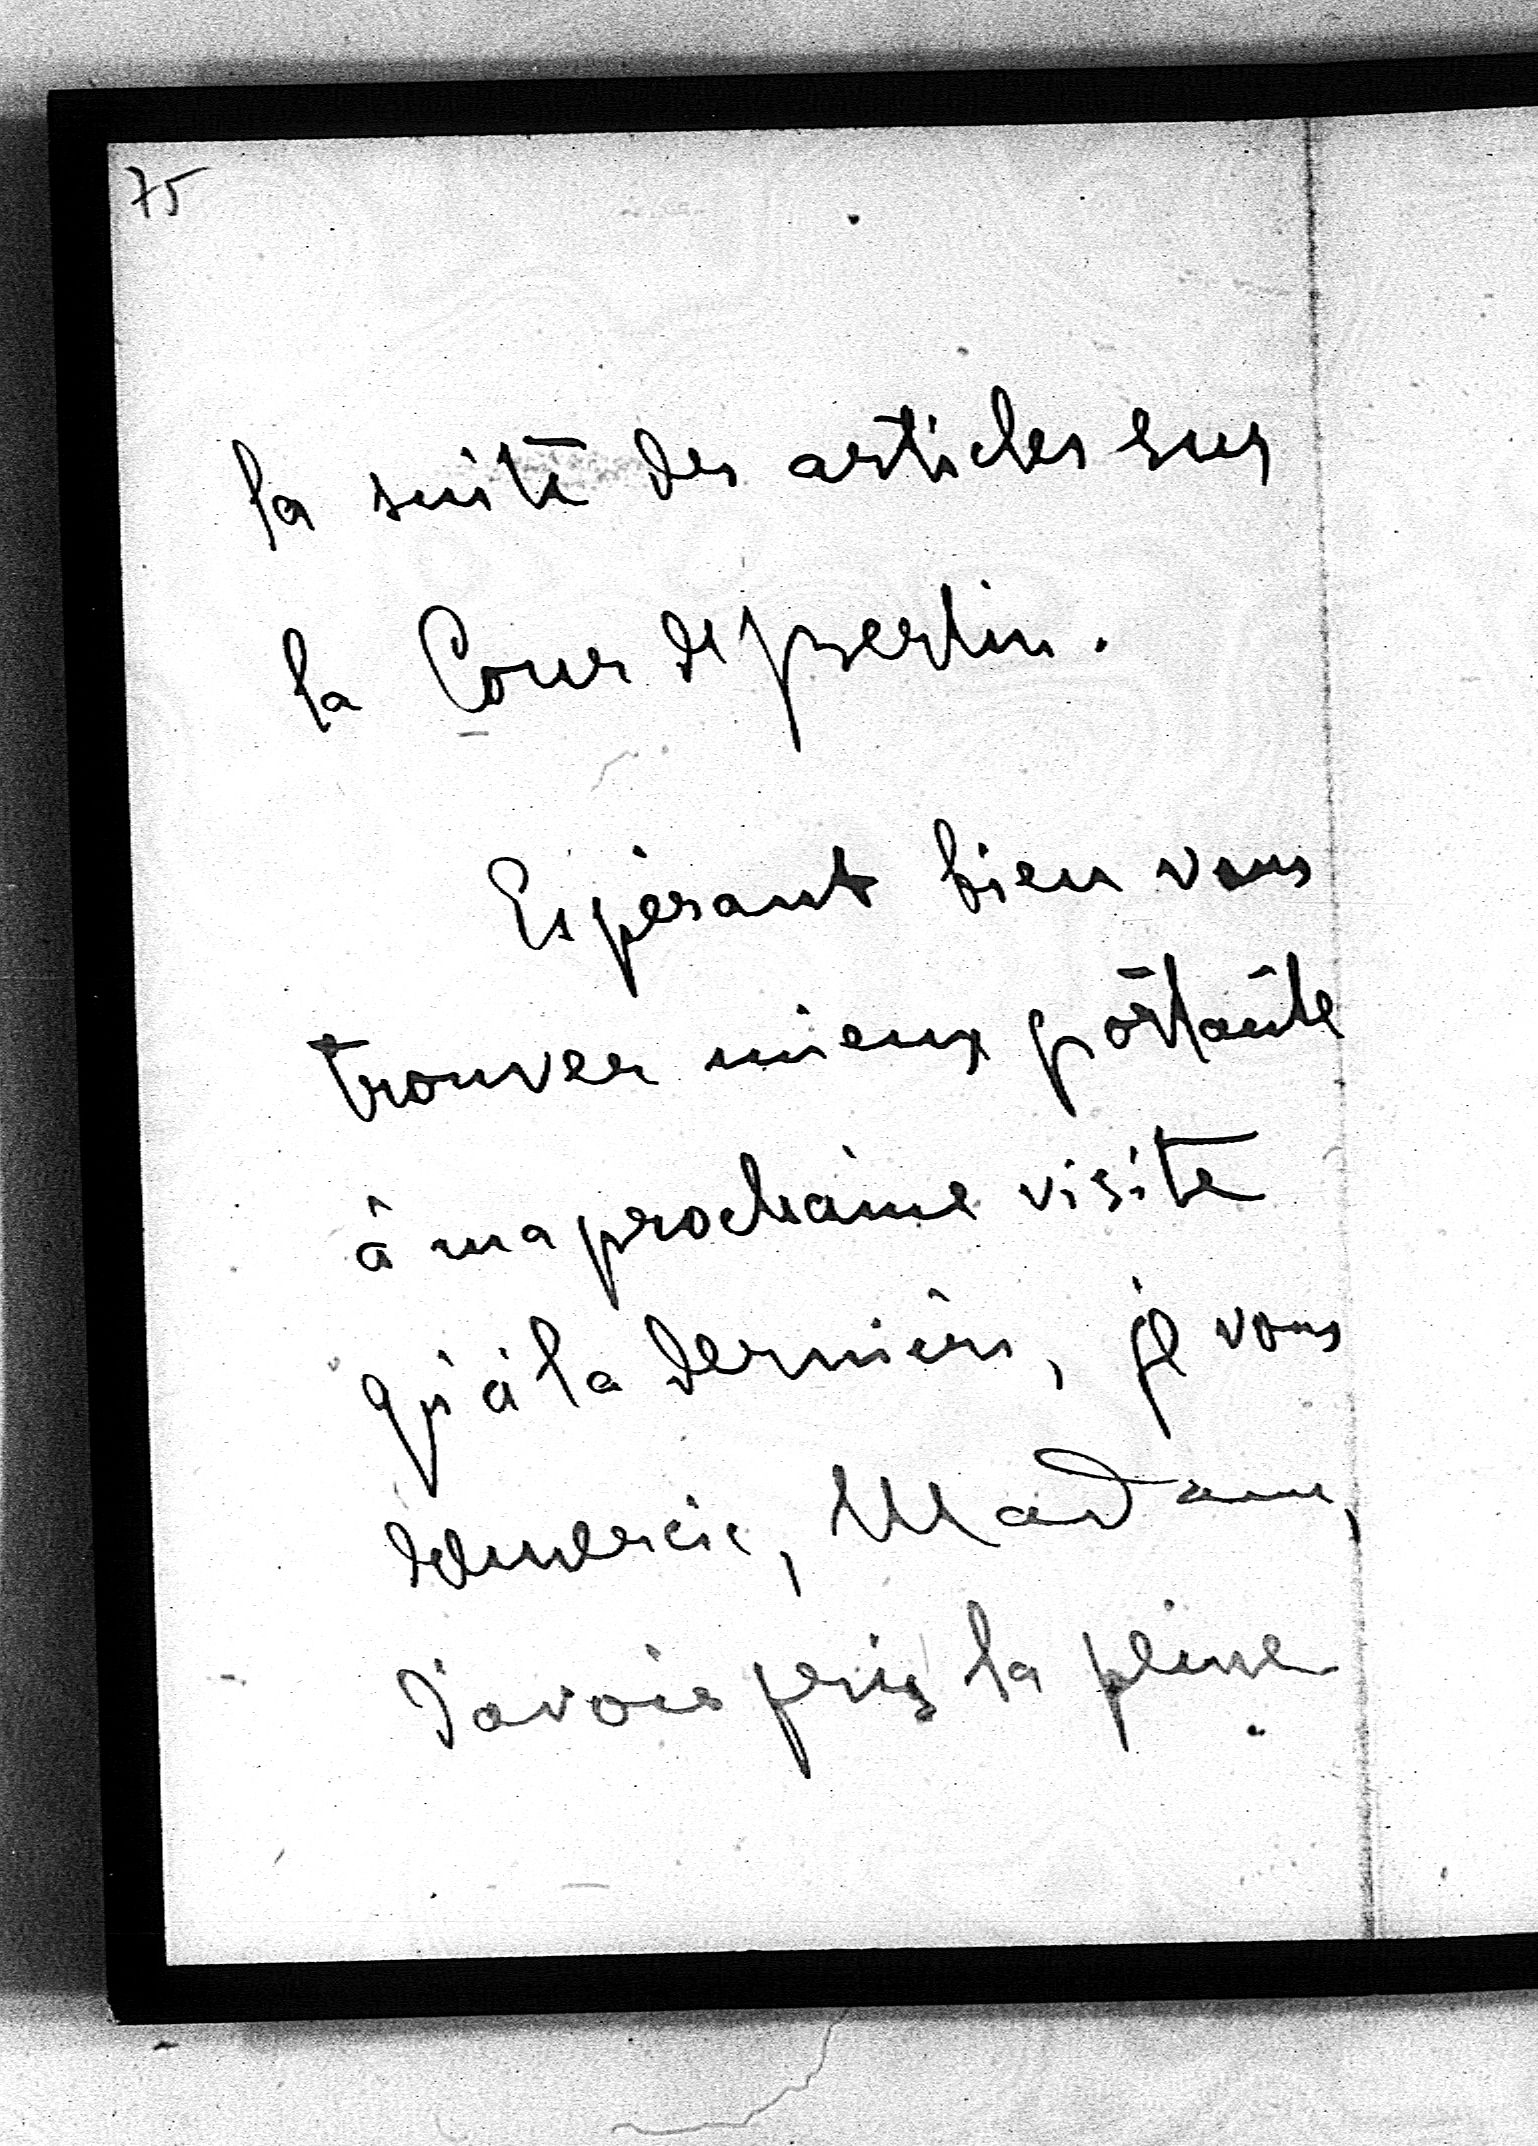 75
la suite des articles sur
la Cour de Berlin.
Espérant bien vous
trouver mieux portante
à ma prochaine visite
qu'à la dernière, je vous
remercie, Madame,
d'avoir pris la peine